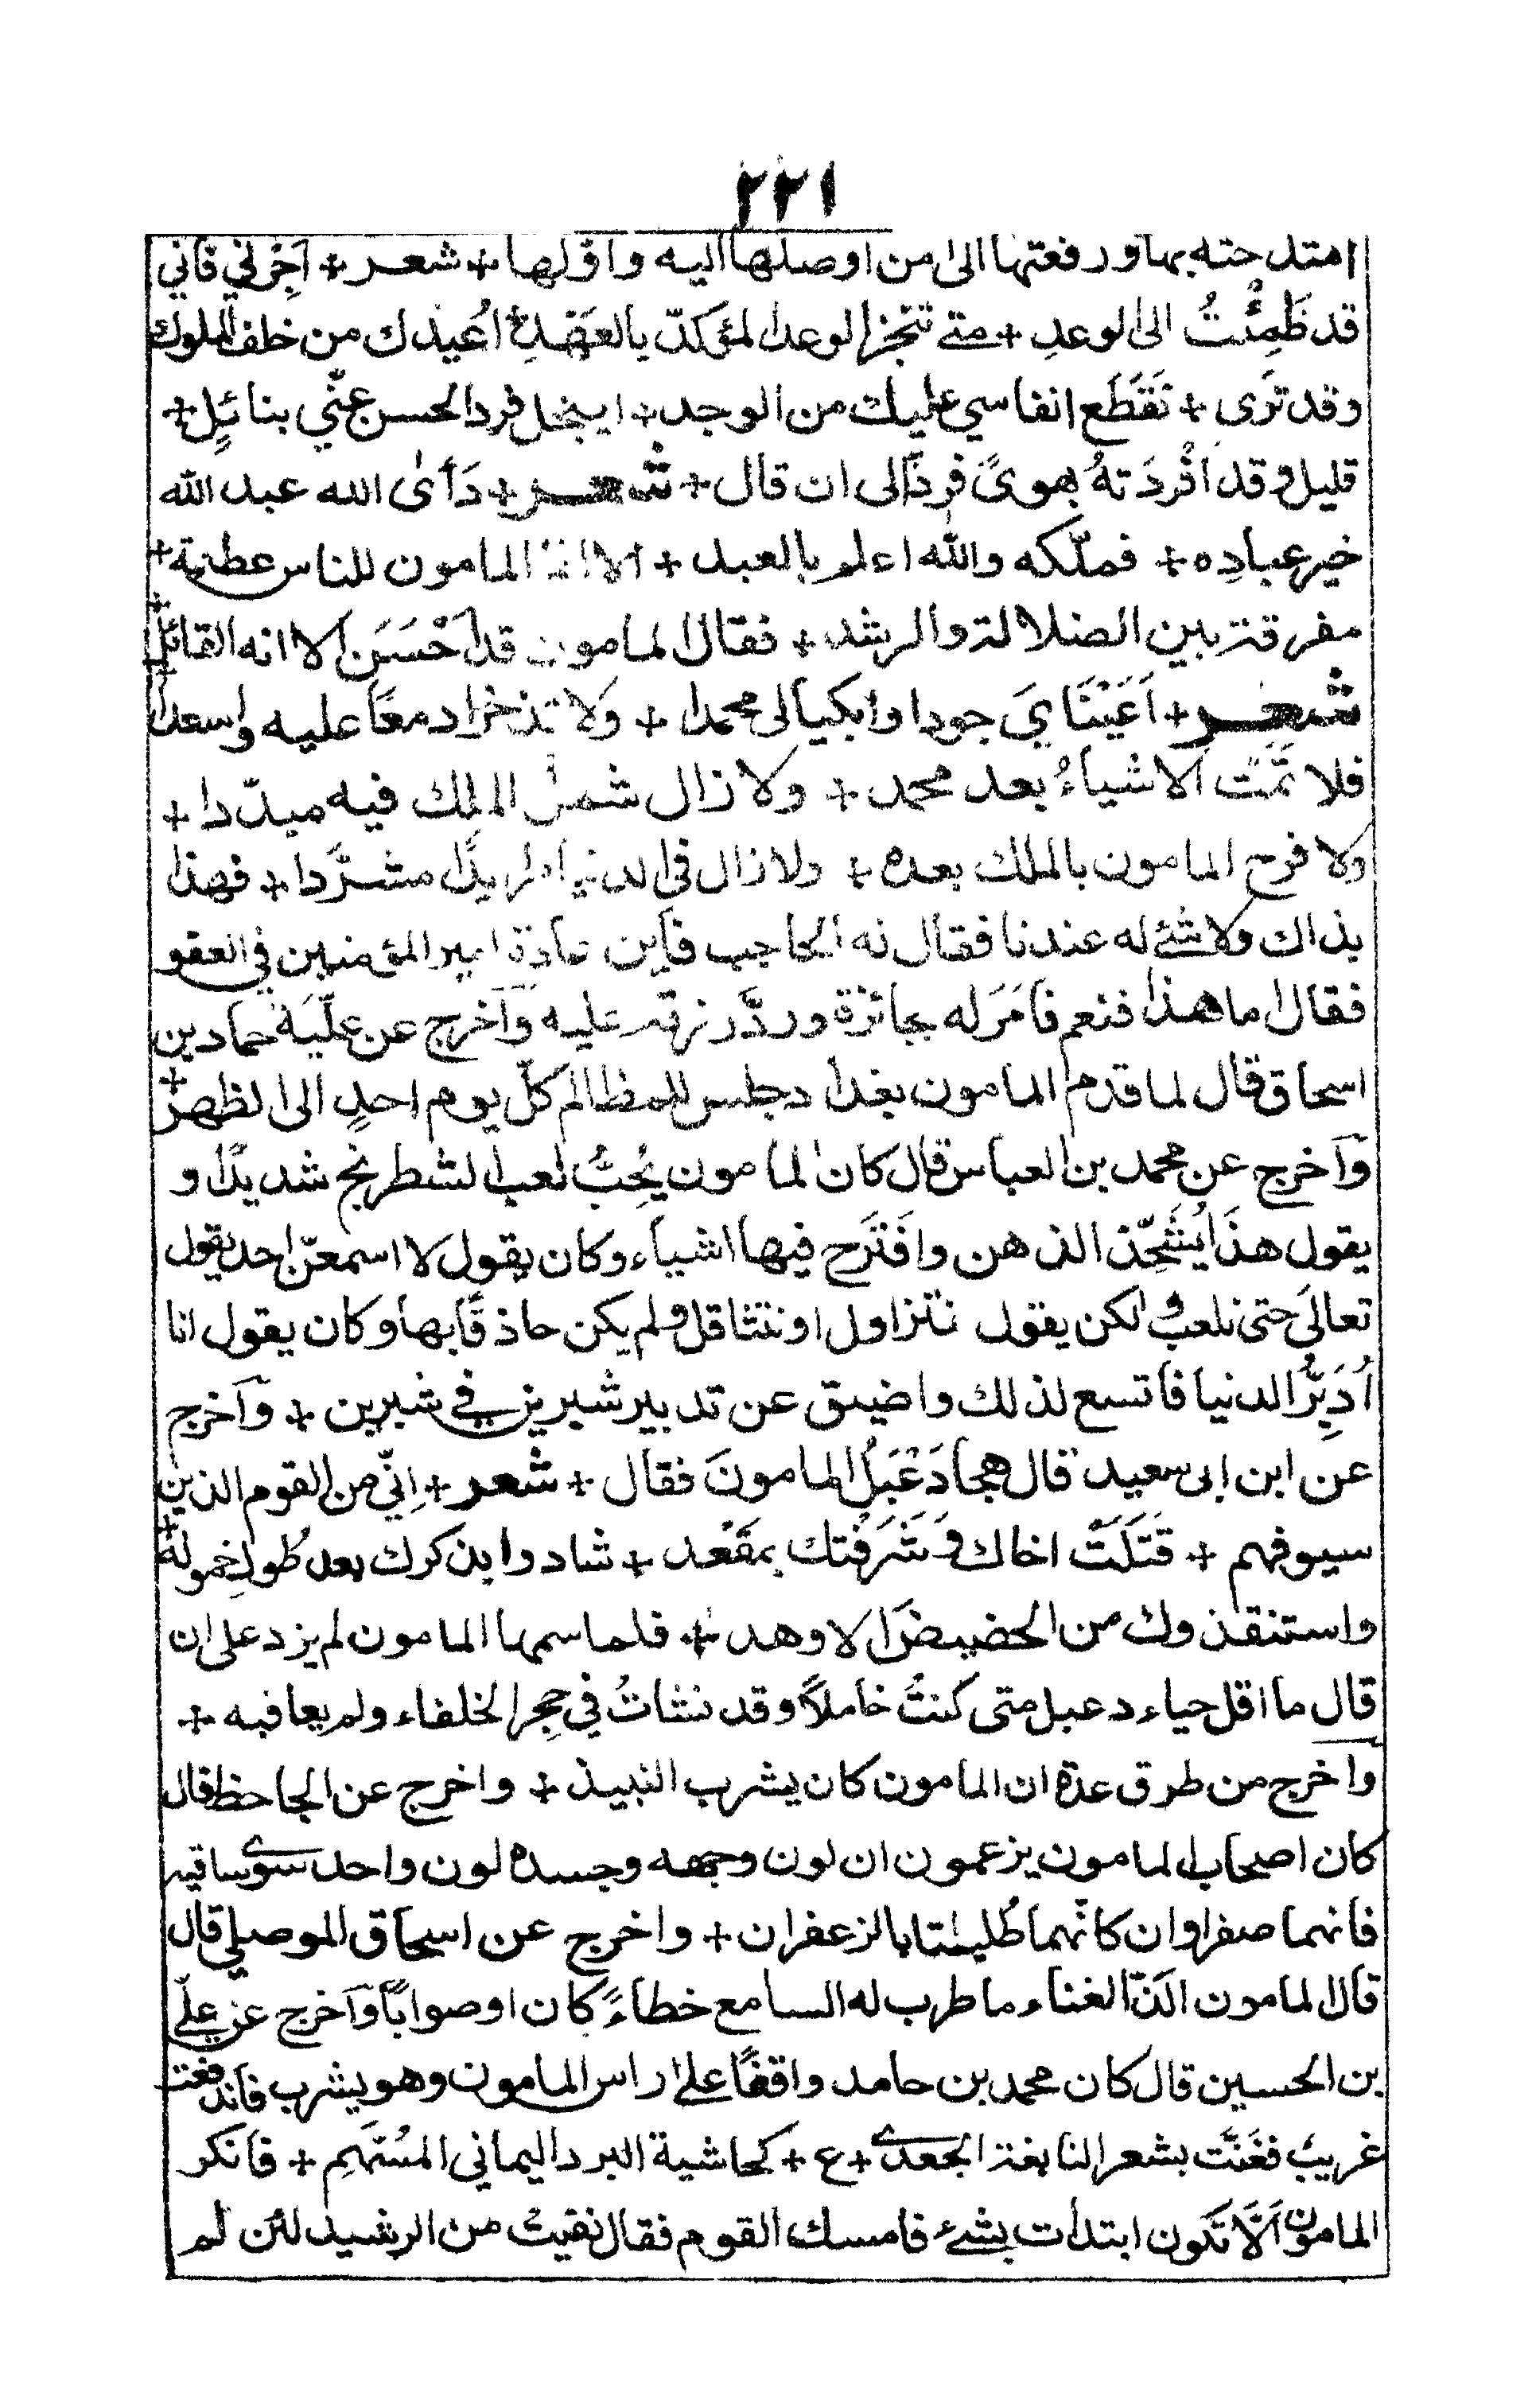 ٢٢١
امتدحته بها ورفعتها الى من اوصلها اليه واوّلها + شعر + اَجِرْني فاني
قد ظَمِئْتُ الى الوعدِ + متى تنجز الوعد المؤكدّ بالعَهْدِ + اُعيذك من خلف الملوك
وقد ترَى + تَقَطَّع انفاسي عليك من الوجد + ايبخل فرد الحسن عنّي بنائلٍ +
قليل وقد اَفْردَتهُ بهوىً فردٍ الى ان قال + شعر + رَأى الله عبد الله
خير عبادِه + فملّكه والله اعلم بالعبد + الا انما المامون للناس عصمة +
مفرقة بين الضلالة والرشد + فقال المامون قد اَحْسَنَ الا انه القائل +
شعر + اَعَيْنَايَ جودا وابكيا لى محمدا + ولا تذخرا دمعًا عليه واسعدا +
فلا تمّت الاشياءُ بعد محمد + ولا زال شمل الملك فيه مبدّدا +
ولا فرح المامون بالملك بعده + ولا زال في الدنيا طريدًا مشرَّدا + فهذا
بذاك ولا شئ له عندنا فقال له الحاجب فاين عادة امير المؤمنين في العفو
فقال اما هذا فنعم فامَرَ له بجائزة وردَّ رزقه عليه وآخرج عن علّيَة حماد بن
اسحاق قال لما قدم المامون بغداد جلس للمظالم كلّ يوم احدٍ الى الظهر +
وآخرج عن محمد بن العباس قال كان المامون يُحِبُّ لعب الشطرنج شديدًا و
يقول هذَا يُشَحِّذ الذهن واقتَرَح فيها اشياء وكان يقول لا اسمعنّ احد يقول
تعالَى حتى نلعب ولكن يقول نتزاول او نتثاقل ولم يكن حاذقًا بها وكان يقول انا
اُدَبِّرُ الدنيا فاتسع لذلك واضيق عن تدبير شبرين في شبرين + وآخرج
عن ابن ابى سعيد قال هجا دَعْبَلُ المامونَ فقال + شعر + اِنّي من القوم الذين
سيوفهم + قَتَلَتْ اخاك وَشَرَفْتك بمقْعد + شادوا بذكرك بعد طُول خِموله +
واستنقذوك من الحضيض الاوهد + فلما سمها المامون لم يزد على ان
قال ما اقل حياء دعبل متى كنتُ خاملًا وقد نشاتُ في حِجر الخلفاء ولم يعاقبه +
وآخرج من طرق عدة ان المامون كان يشرب النبيذ + واخرج عن الجاحظ قال
كان اصحاب المامون يزعمون ان لون وجهه وجسده لون واحد سوى ساقيه
فانهما صفراوان كانّهما طُليتا بالزعفران + واخرج عن اسحاق الموصلي قال
قال المامون الَذّ الغناء ما طرب له السامع خطاءً كان او صوابًا وآخرج عن عليّ
بن الحسين قال كان محمد بن حامد واقفًا على راس المامون وهو يشرب فاندفعت
غريبُ فغَنَّت بشعر النابغة الجعدى + ع + كحاشية البرد اليماني المُسَهّمِ + فانكر
المامون اَلَّا تكون ابتدات بشئ فامسك القوم فقال نفيتُ من الرشيد لئن لم